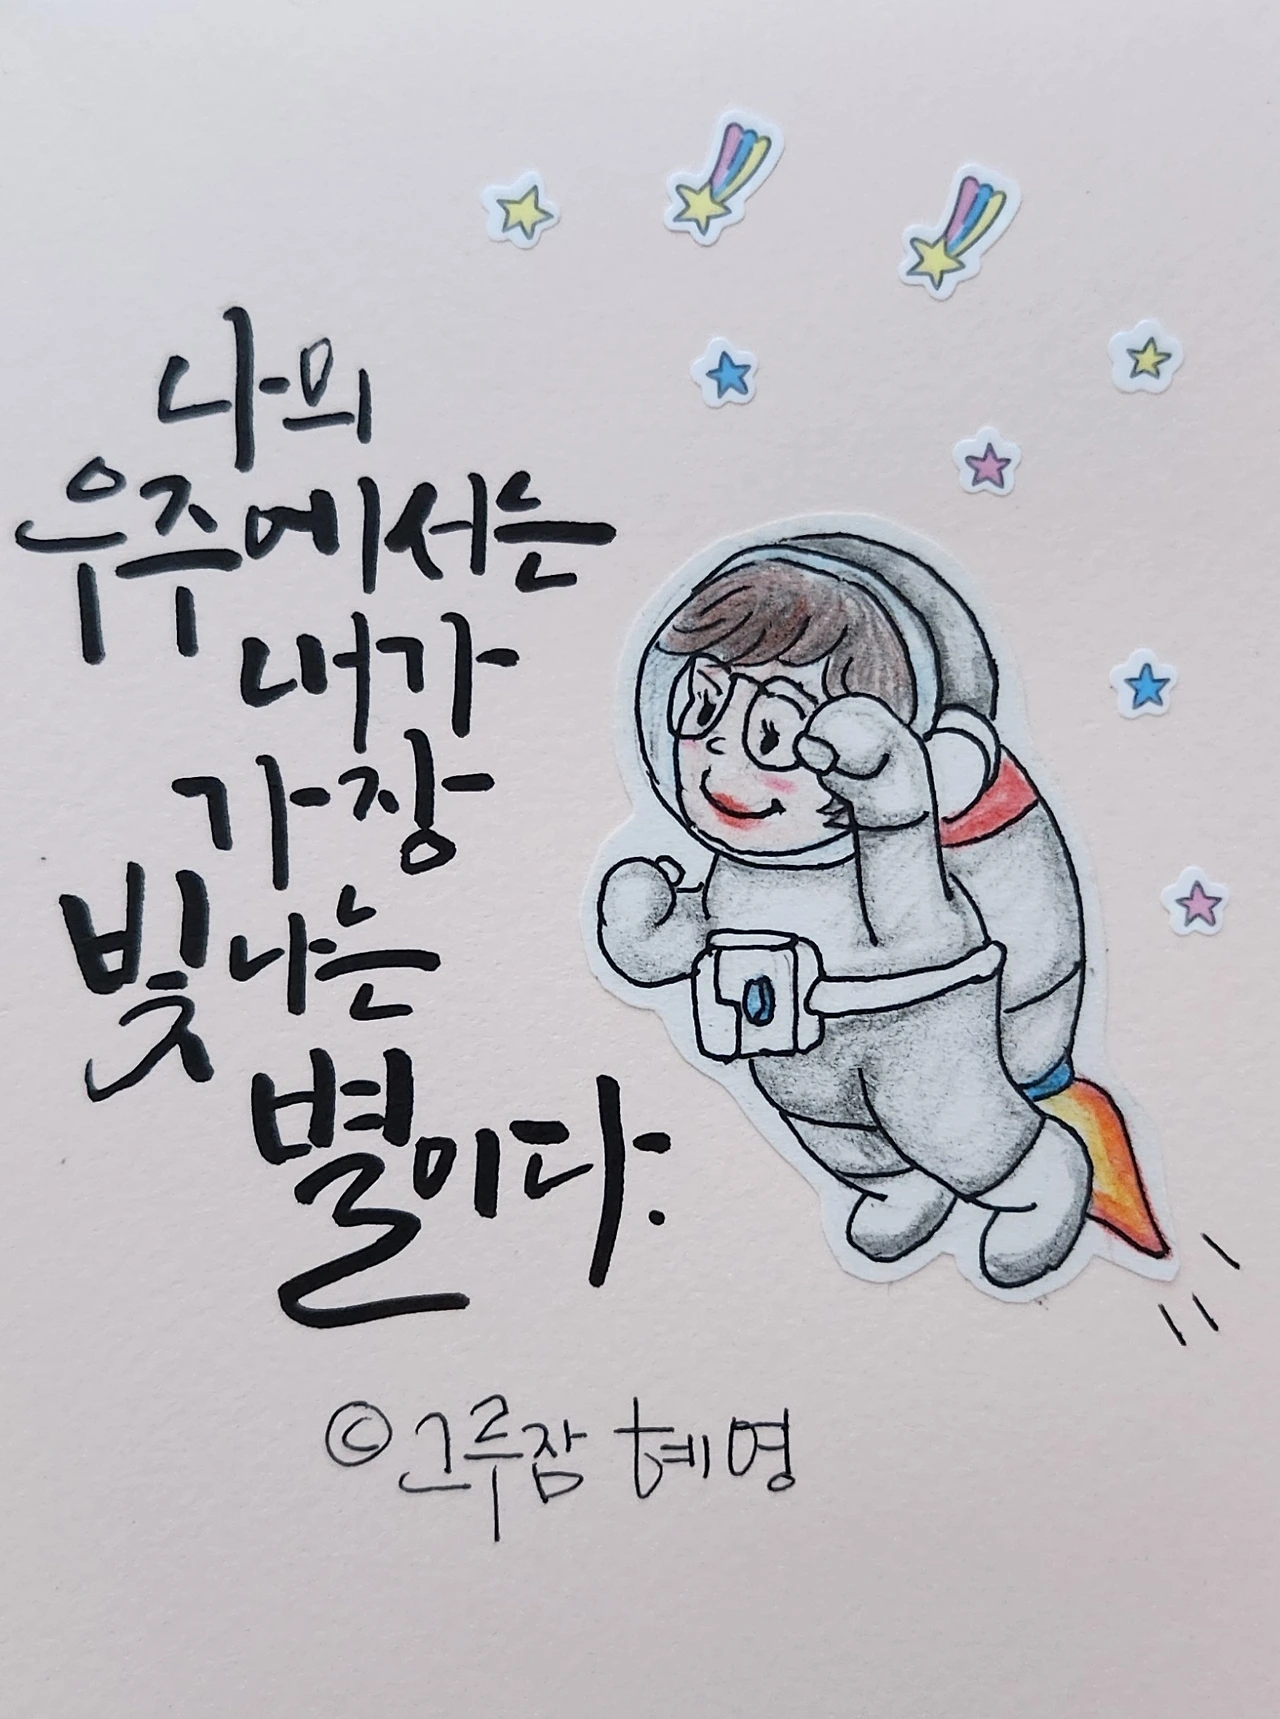 나의
우주에서는
내가
가장
빛나는
별이다.
©그루잠 혜영